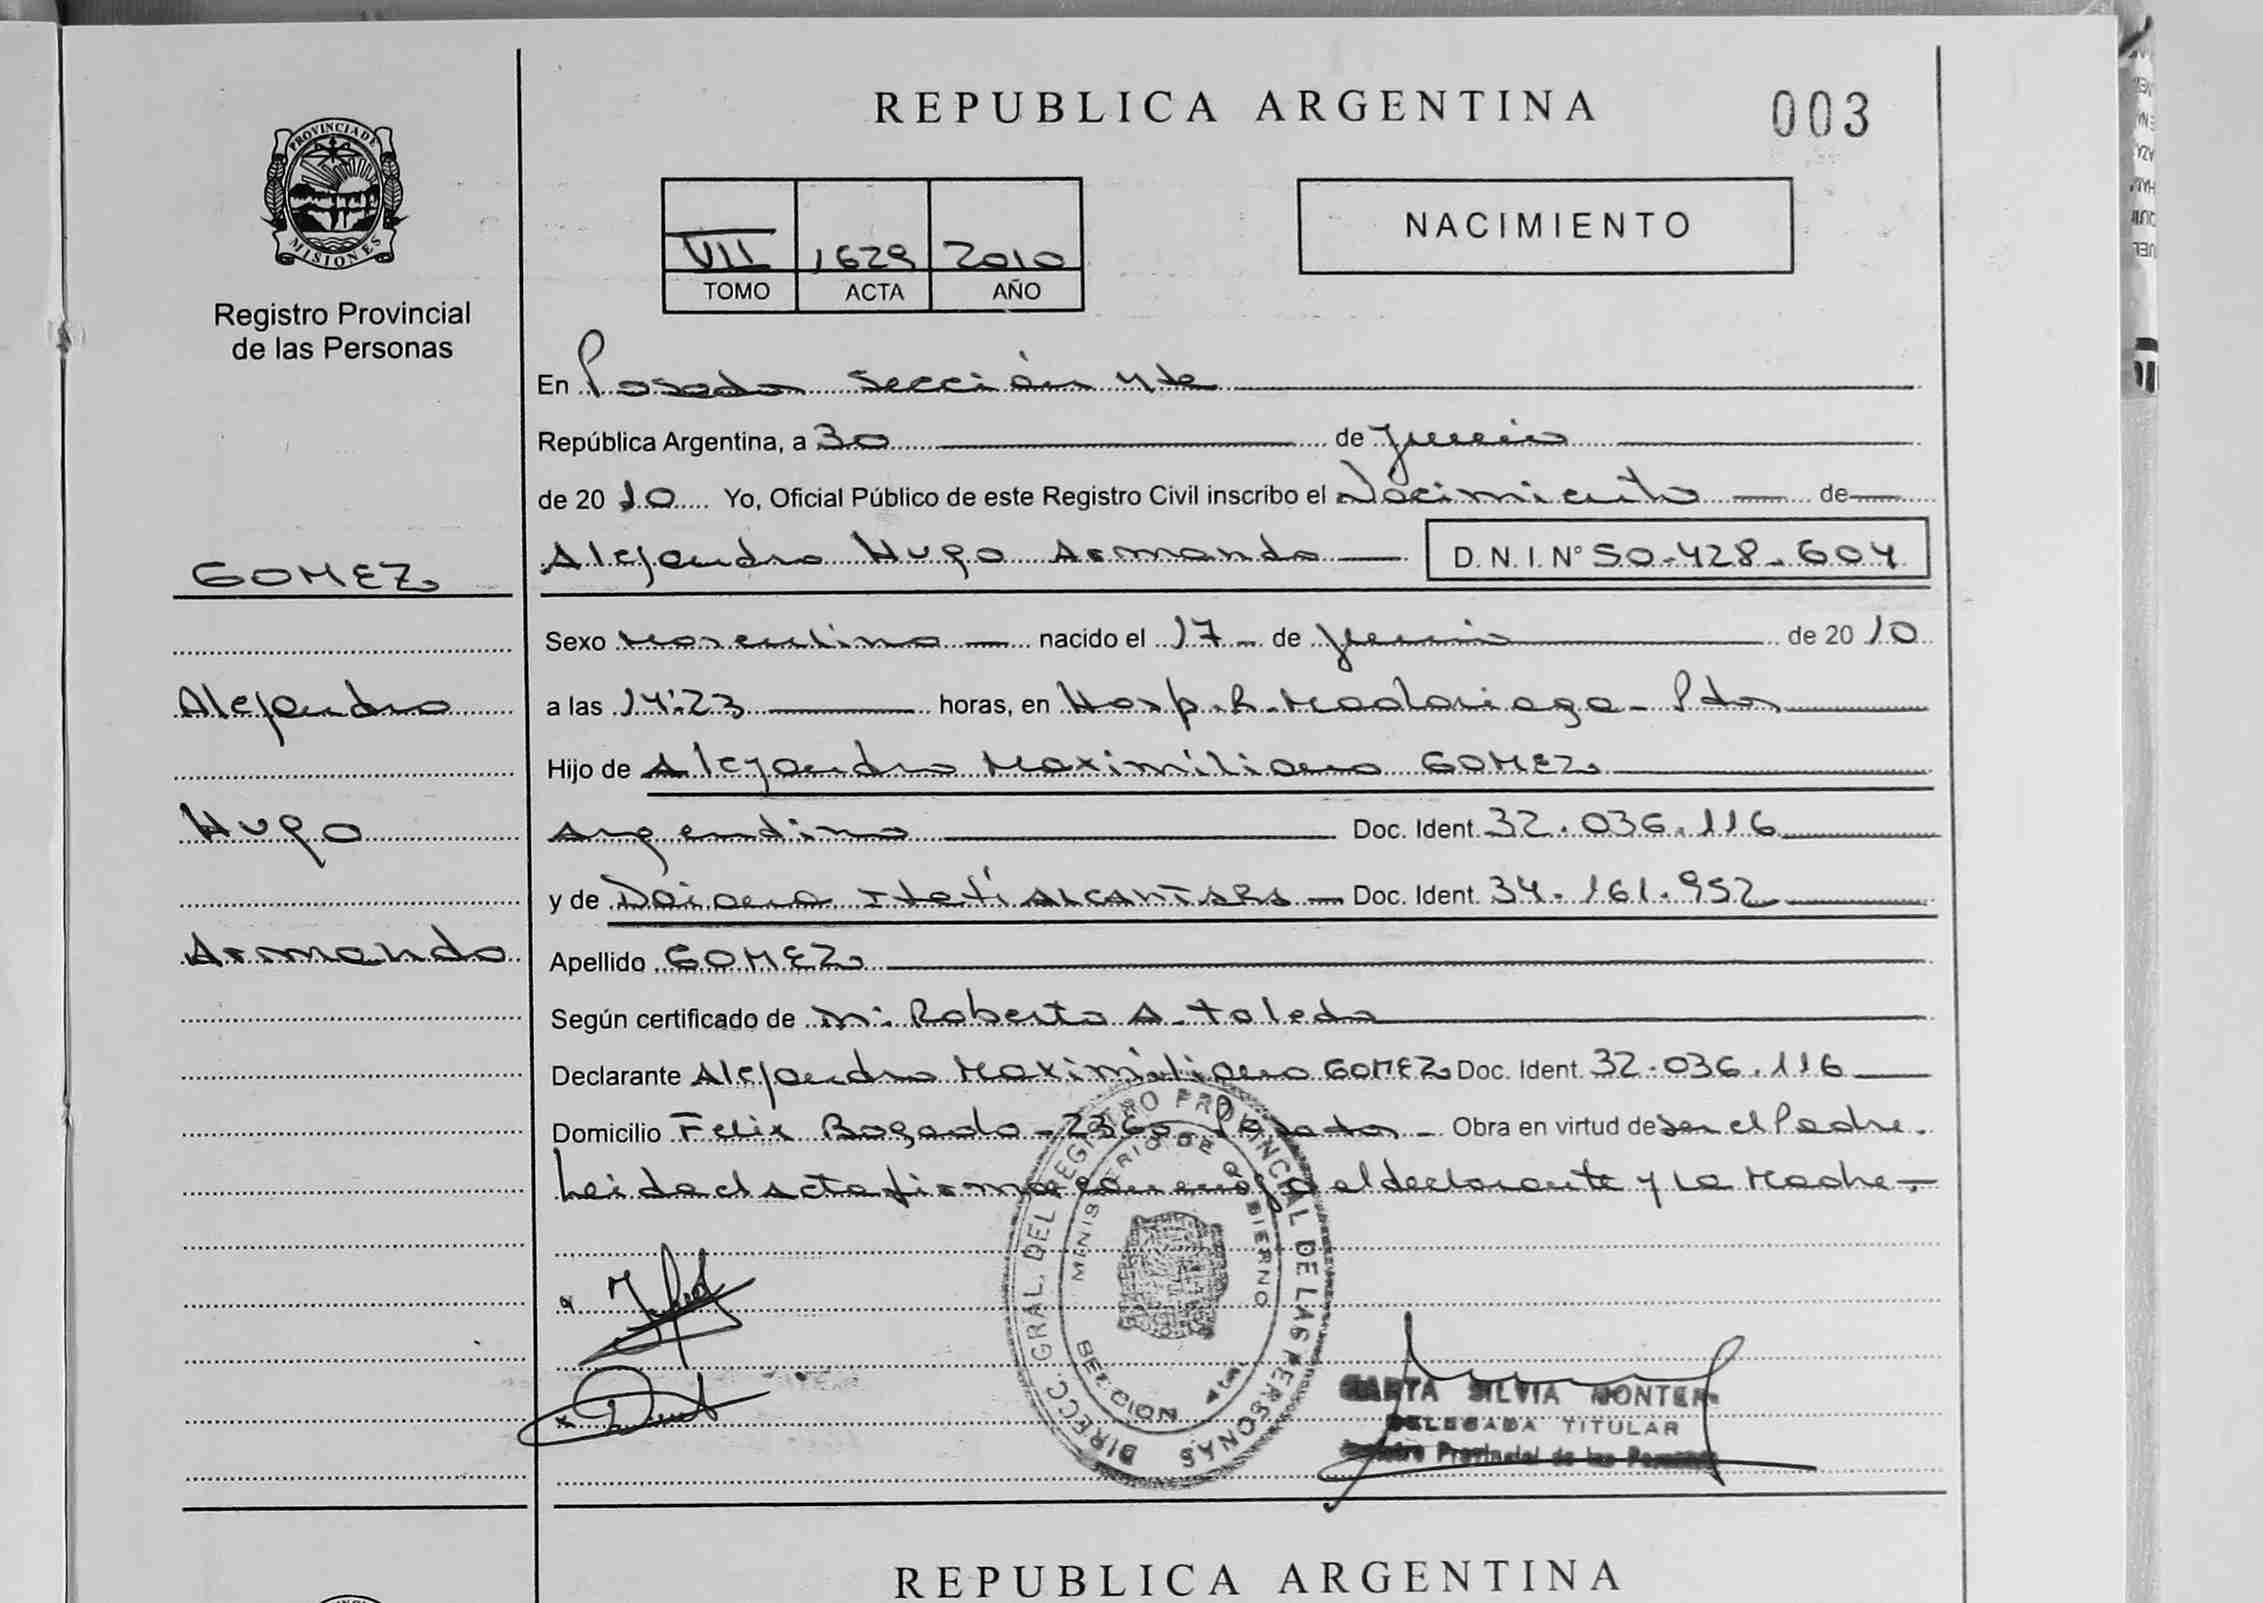 REPUBLICA ARGENTINA
003
PROVINCIA DE
MISIONES
Registro Provincial
de las Personas
VII 1629 2010
TOMO ACTA AÑO
NACIMIENTO
En Posadas Sección 4ta
República Argentina, a 30 de Junio
de 2010 Yo, Oficial Público de este Registro Civil inscribo el Nacimiento de
Alejandro Hugo Armando D.N.I. N° 50.428.604
GOMEZ
Alejandro
Hugo
Armando
Sexo Masculino nacido el 17 de Junio de 2010
a las 14:23 horas, en Hosp. R. Madariaga - Pdas
Hijo de Alejandro Maximiliano GOMEZ
Argentino Doc. Ident. 32.036.116
y de Daiana Itatí ALCANTARA Doc. Ident. 34.161.952
Apellido GOMEZ
Según certificado de Roberto A. Toledo
Declarante Alejandro Maximiliano GOMEZ Doc. Ident. 32.036.116
Domicilio Felix Bogado - 2360 Posadas - Obra en virtud de ser el Padre.
Leida el acta firma conmigo el declarante y La Madre.-
DIRECC. GRAL. DEL REGISTRO PROVINCIAL DE LAS PERSONAS
MINISTERIO DE GOBIERNO
SECCION 4ta.
SILVIA
DELEGADA TITULAR
Registro Provincial de las Personas
REPUBLICA ARGENTINA